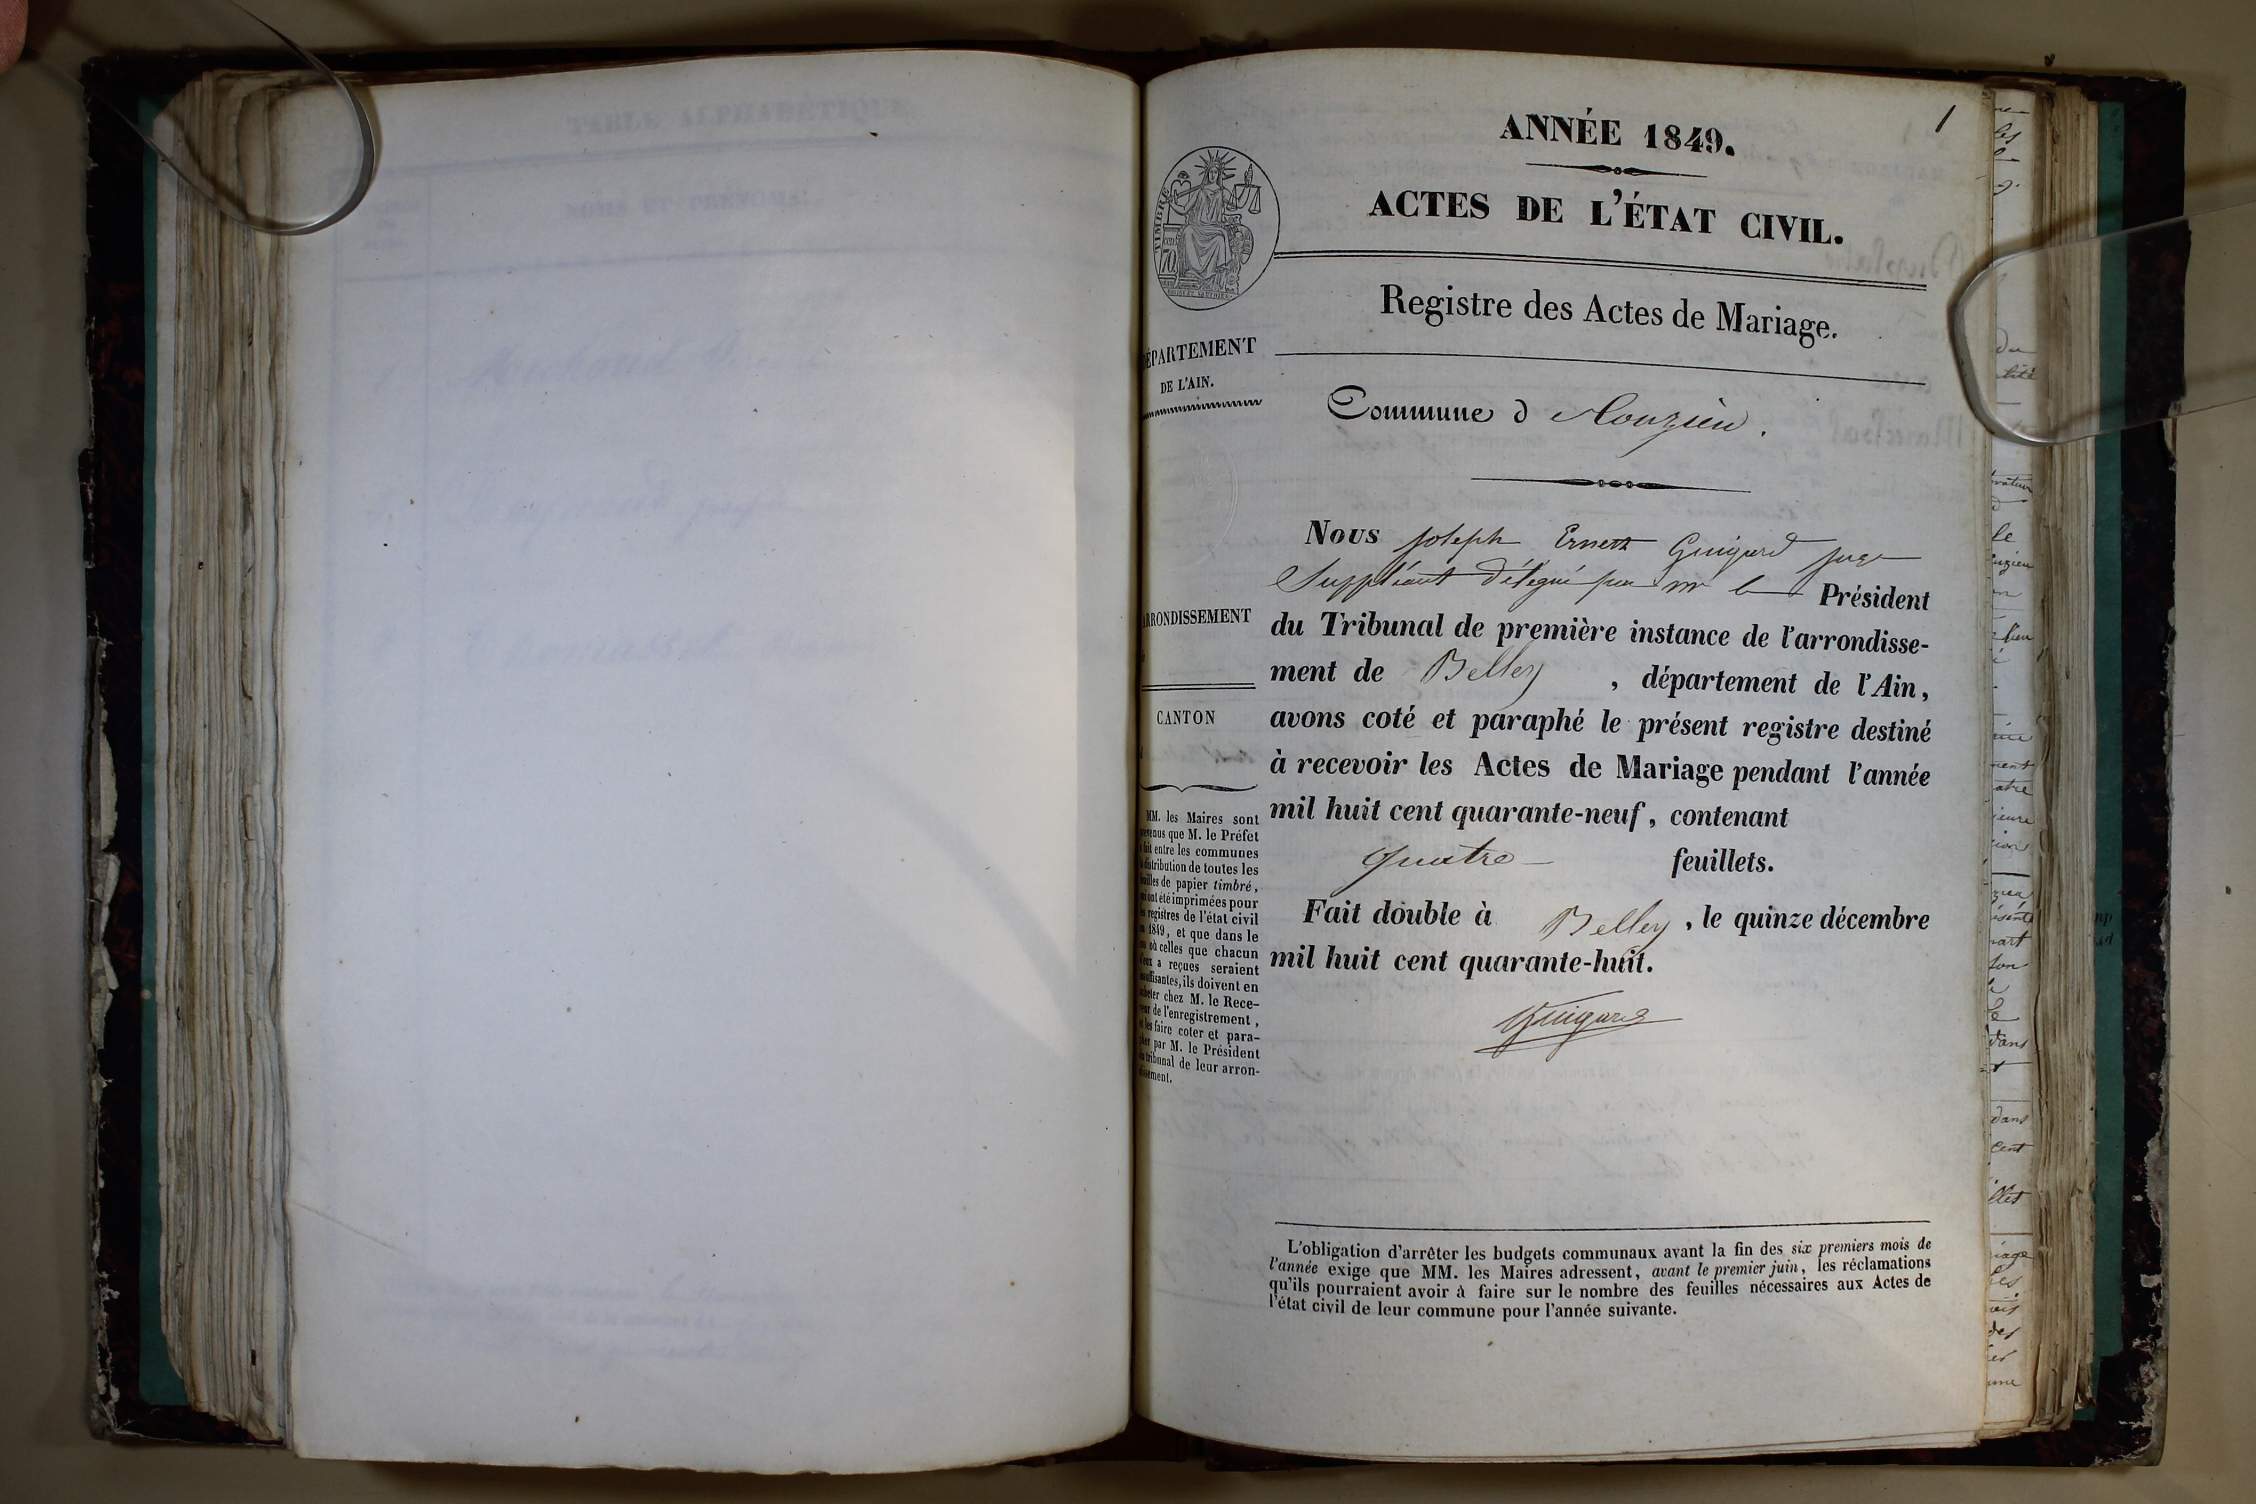 1
ANNÉE 1849.
ACTES DE L'ÉTAT CIVIL.
TIMBRE
70
Registre des Actes de Mariage.
DÉPARTEMENT
DE L'AIN.
Commune d
Nous Joseph Ernest Guigard juge
Suppléant délégué par mr le Président
du Tribunal de première instance de l'arrondisse-
ment de Belley , département de l'Ain,
avons coté et paraphé le présent registre destiné
à recevoir les Actes de Mariage pendant l'année
mil huit cent quarante-neuf, contenant
quatre feuillets.
Fait double à Belley , le quinze décembre
mil huit cent quarante-huit.
Guigard
ARRONDISSEMENT
CANTON
MM. les Maires sont
prévenus que M. le Préfet
a fait entre les communes
la distribution de toutes les
feuilles de papier timbré,
qui ont été imprimées pour
les registres de l'état civil
en 1849, et que dans le
cas où celles que chacun
d'eux a reçues seraient
insuffisantes, ils doivent en
acheter chez M. le Rece-
veur de l'enregistrement,
et les faire coter et para-
pher par M. le Président
du tribunal de leur arron-
dissement.
L'obligation d'arrêter les budgets communaux avant la fin des six premiers mois de
l'année exige que MM. les Maires adressent, avant le premier juin, les réclamations
qu'ils pourraient avoir à faire sur le nombre des feuilles nécessaires aux Actes de
l'état civil de leur commune pour l'année suivante.